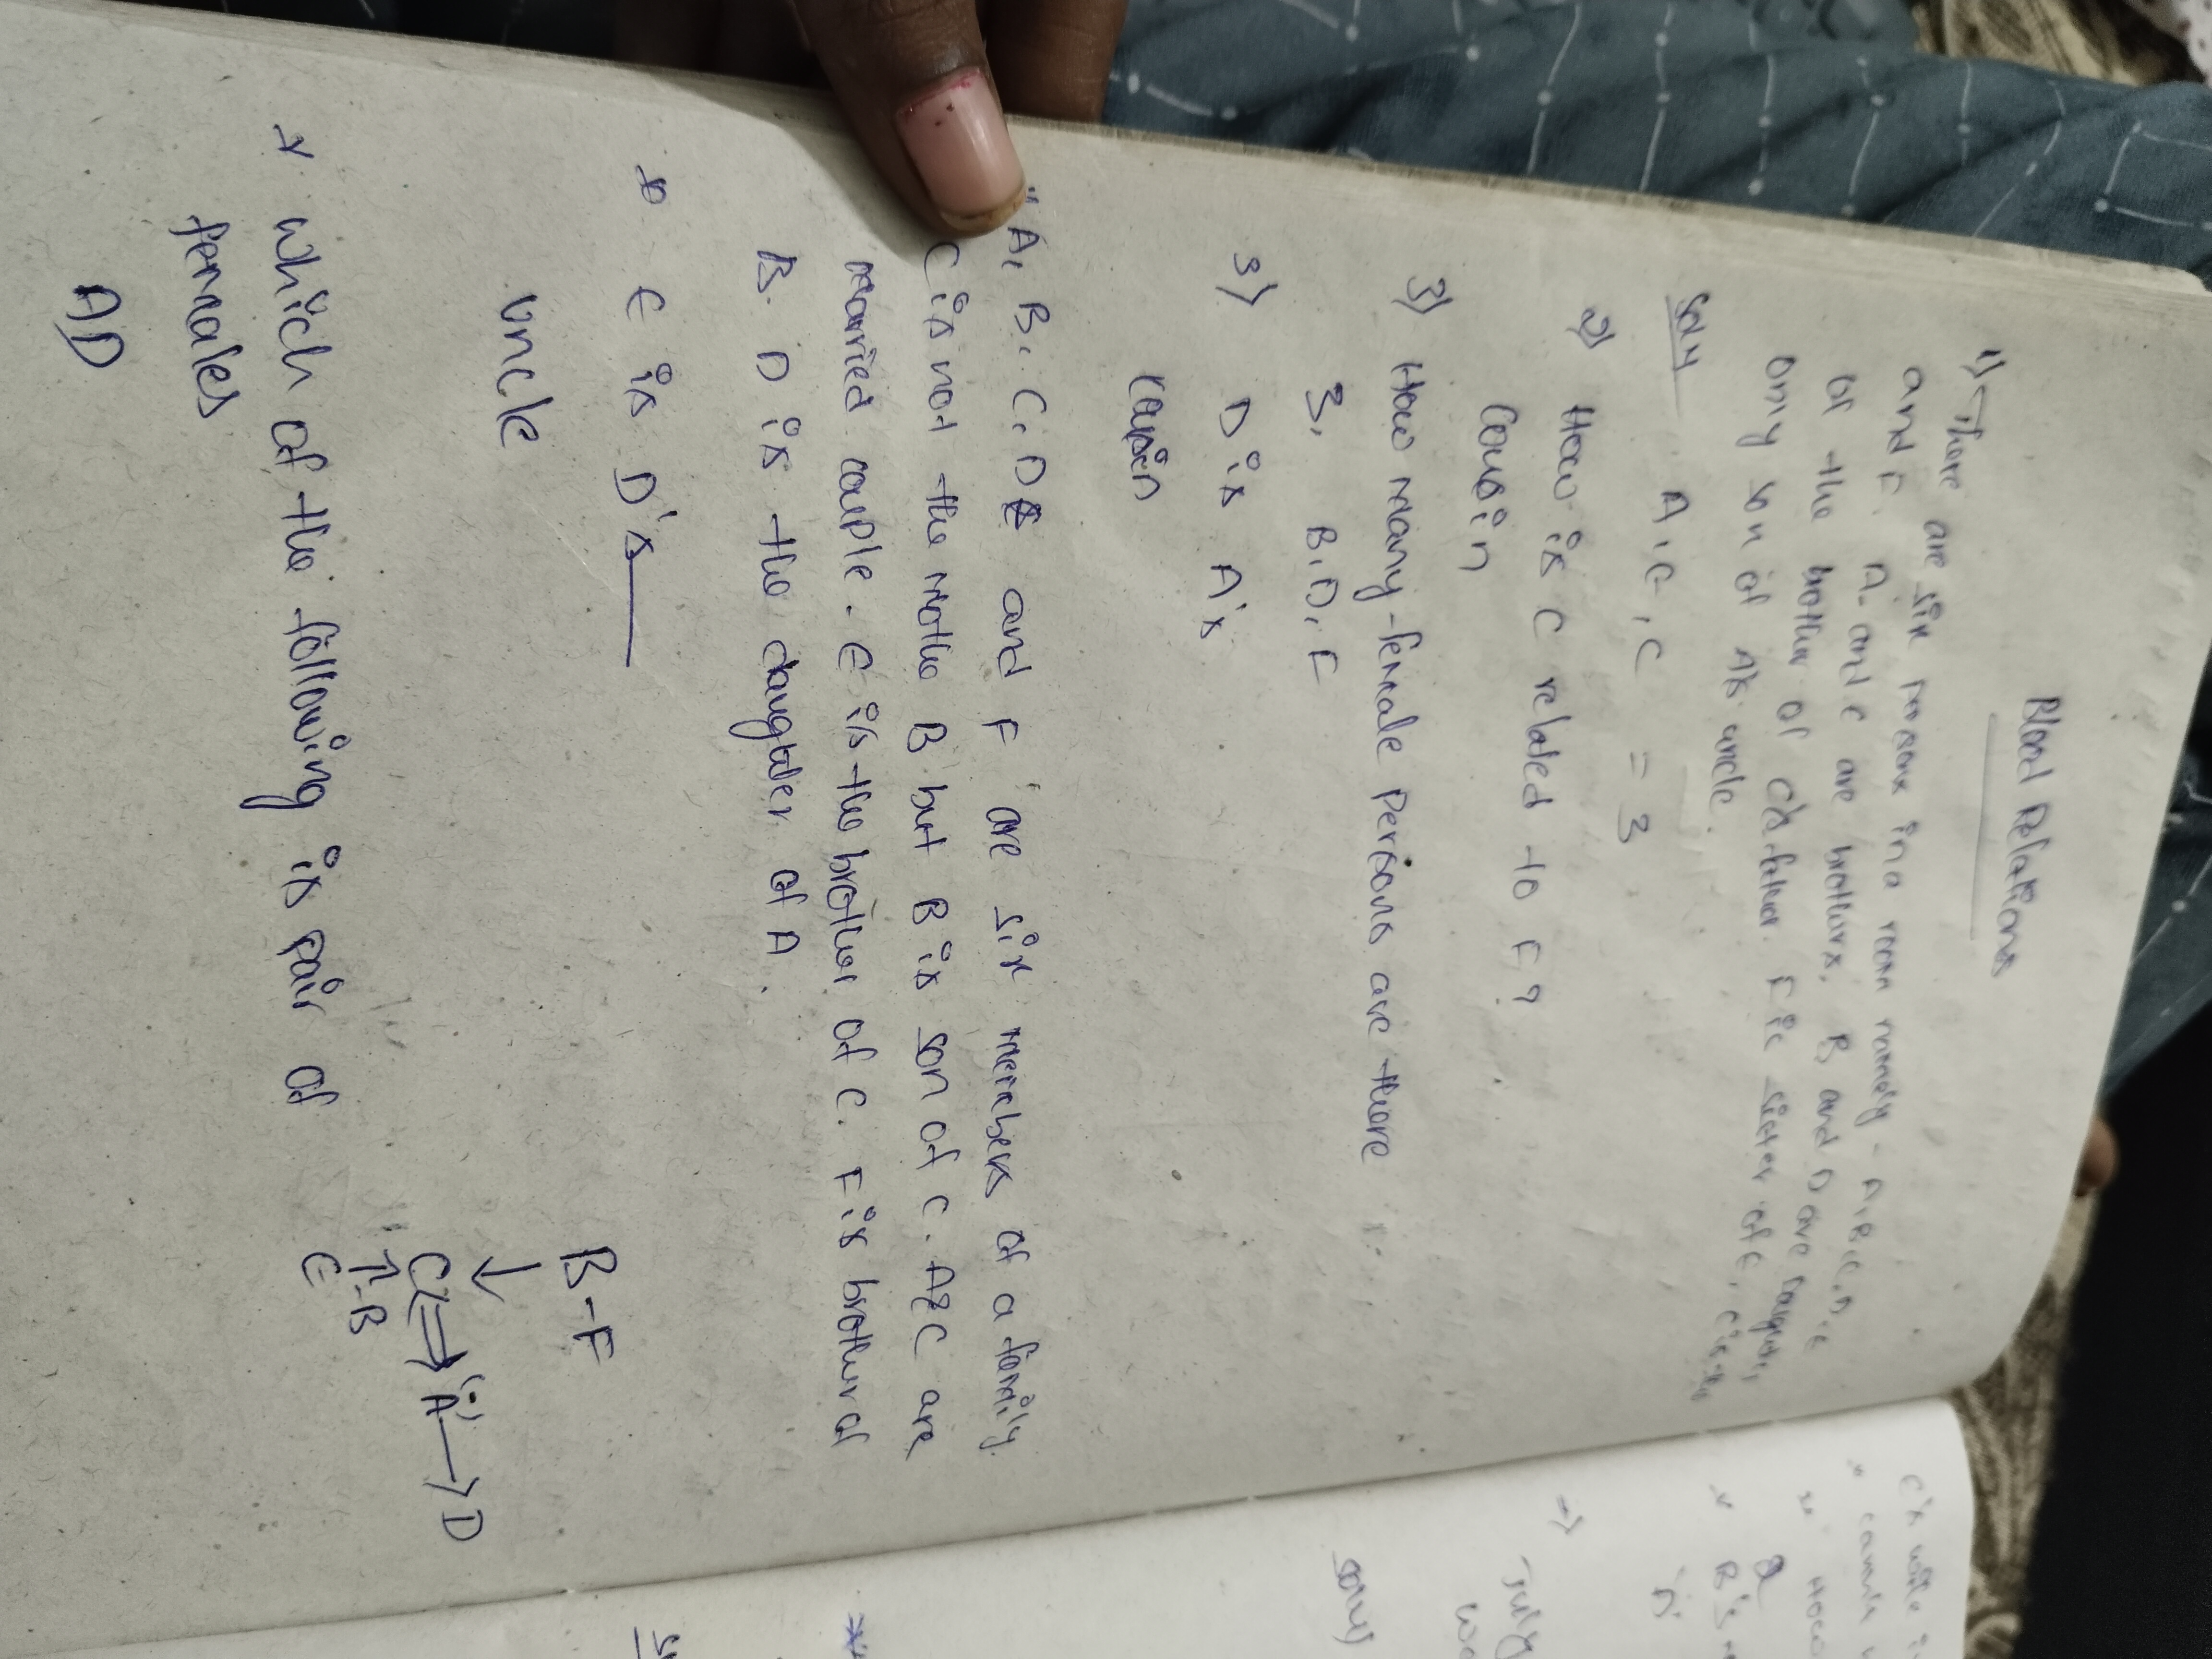 Blood Relations
1) There are six persons in a room namely - A, B, C, D, E
and F. A and E are brothers. B and D are
of the brother of C's father. F is sister of E, C is the
only son of A's uncle.
Soln A, E, C = 3
2) How is C related to F?
Cousin
3) How many female Persons are there
3, B, D, F
3) D is A's
Cousin
" A, B, C, D E and F are six members of a family.
C is not the mothe B but B is son of C. A & C are
married couple. E is the brother of C. F is brother of
B. D is the daugtder of A.
* E is D's
uncle
* which of the following is pair of
females
AD
B-F
↓
C ⇒ A → D
↑-B
E
C's wife
July
Soln